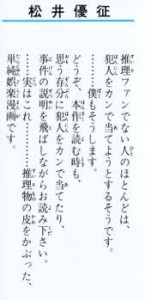 松井優征
推理ファンでない人のほとんどは、
犯人をカンで当てようとするそうです。
………僕もそうします。
どうぞ、本作を読む時も、
思う存分に犯人をカンで当てたり、
事件の説明を飛ばしながらお読み下さい。
……実はこれ………推理物の皮をかぶった、
単純娯楽漫画です。